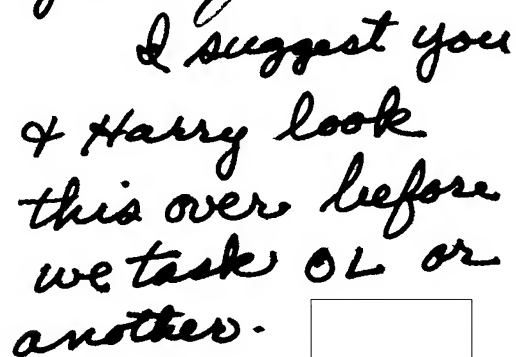 I suggest you
& Harry look
this over before
we task OL or
another.